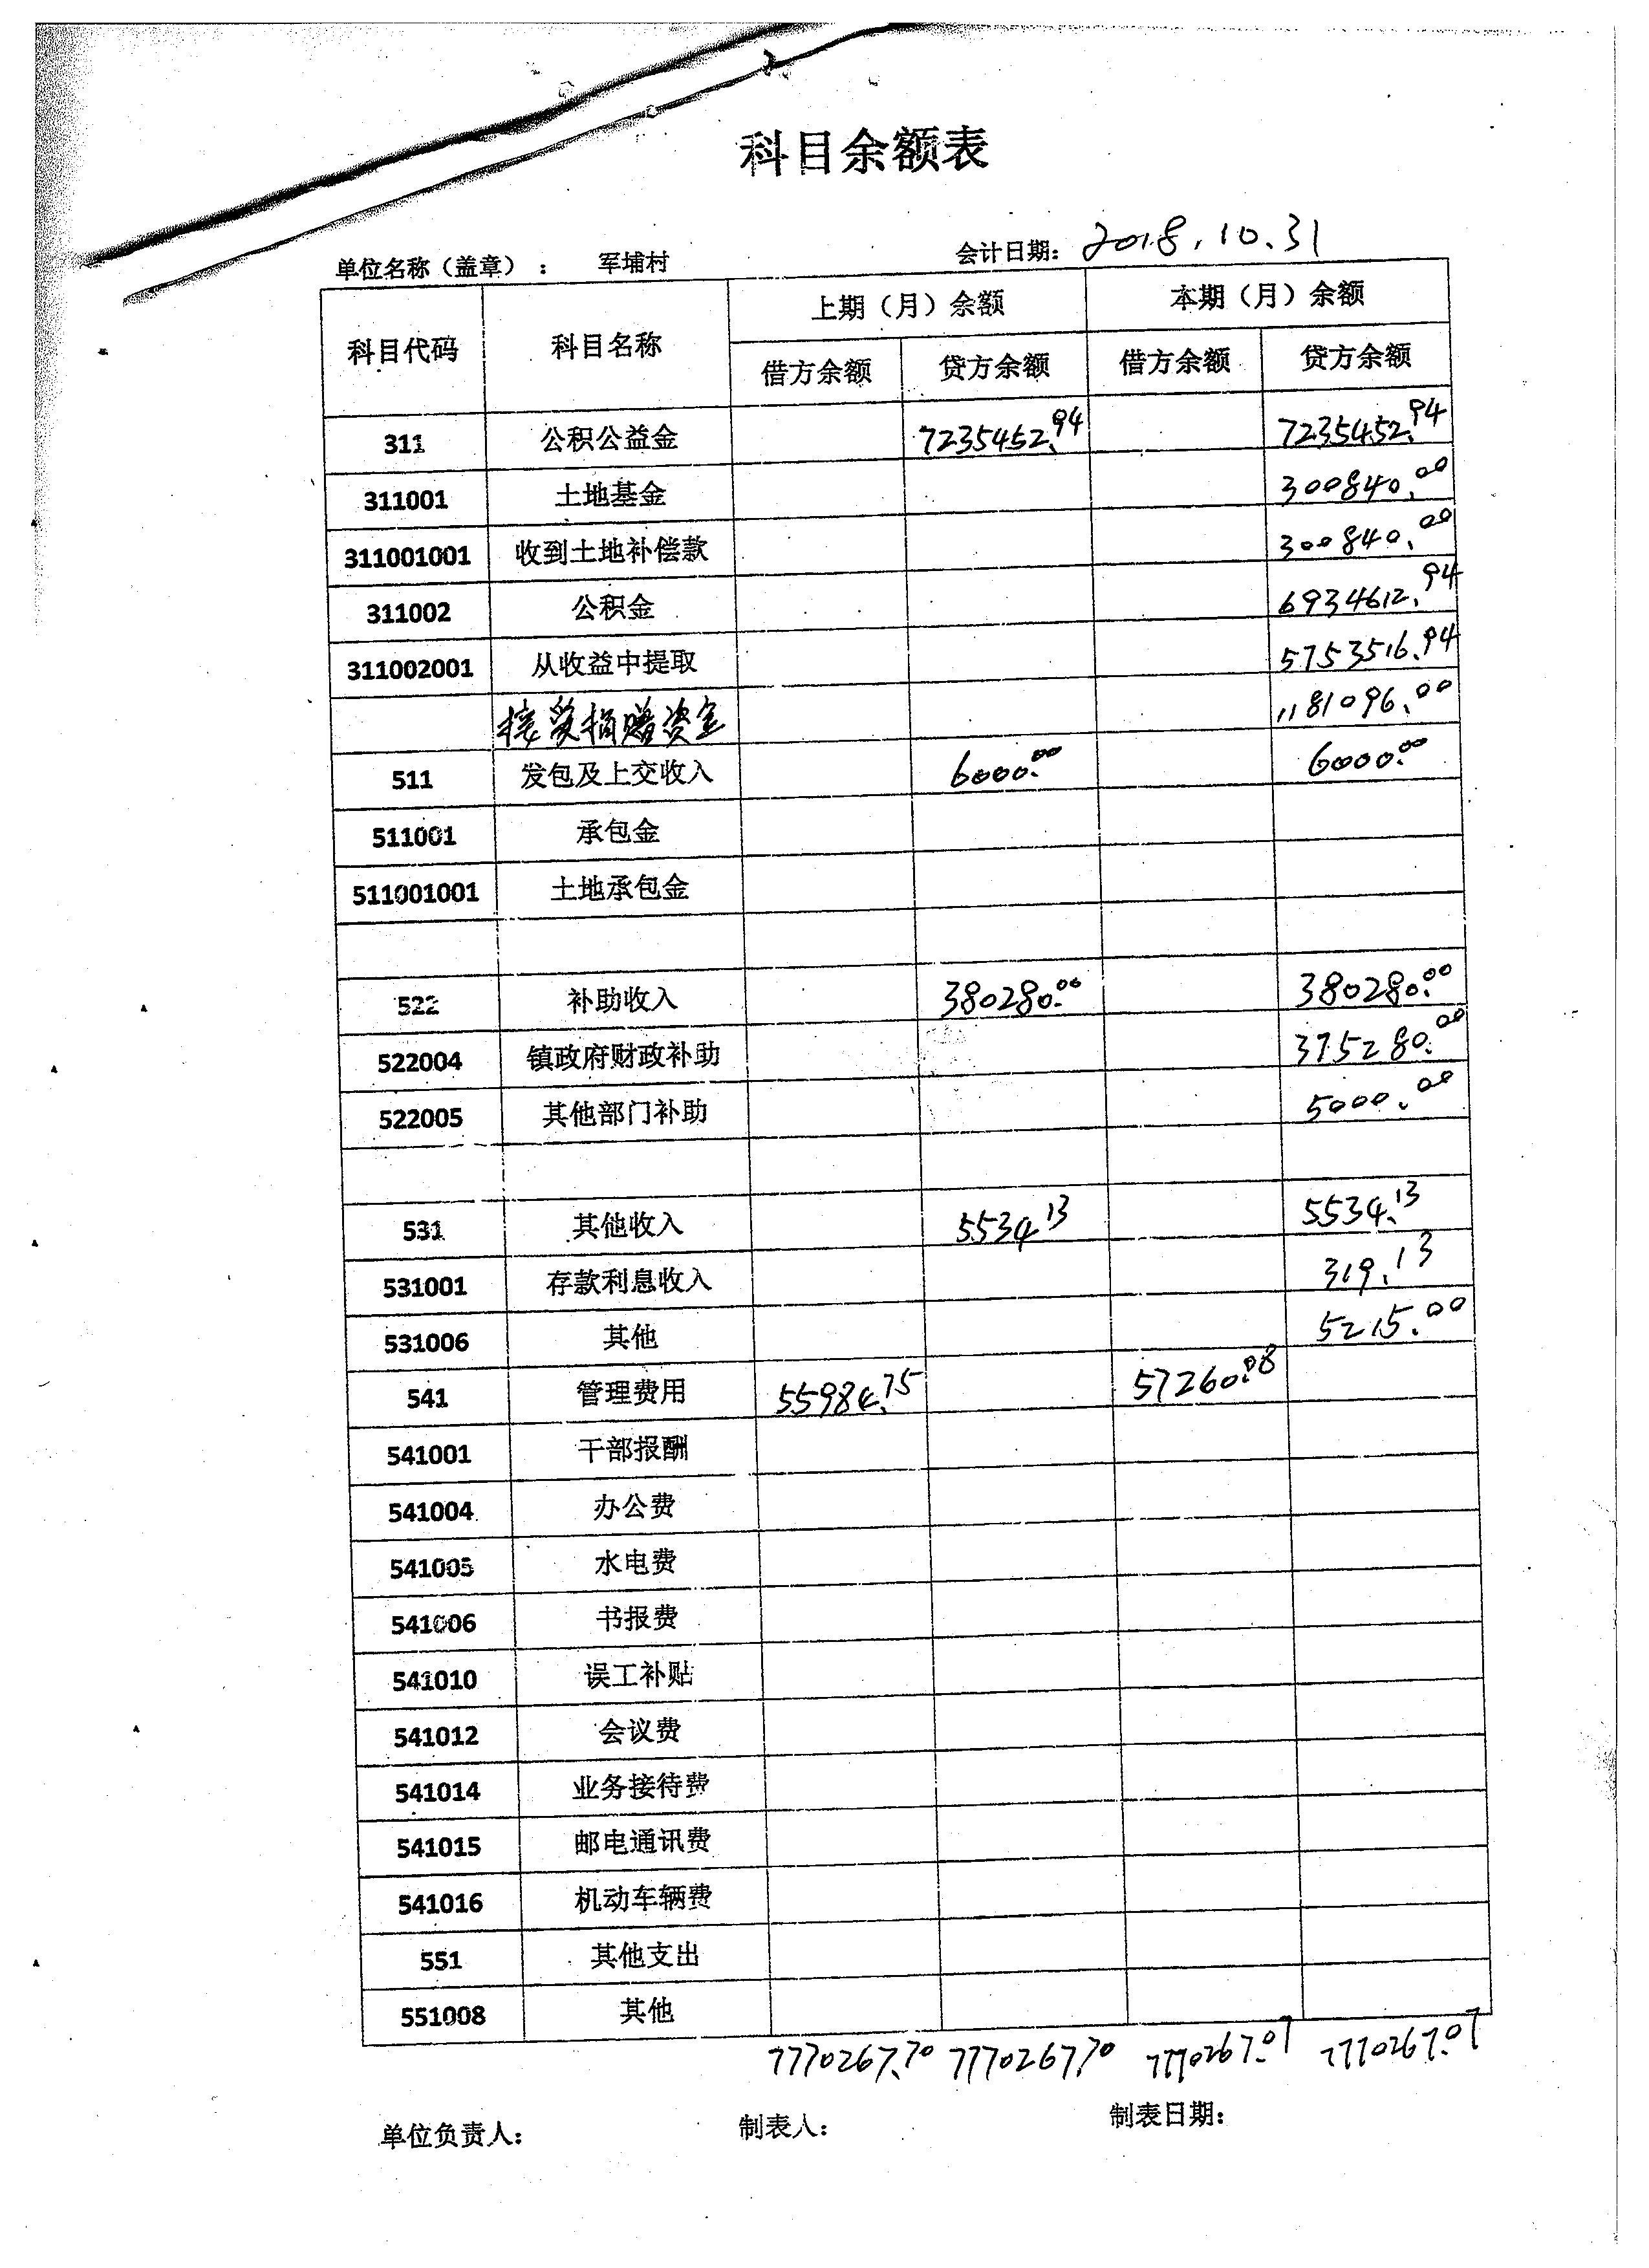 科目余额表
单位名称（盖章）： 军埔村 会计日期： 2018.10.31
科目代码 科目名称 上期（月）余额 本期（月）余额
借方余额 贷方余额 借方余额 贷方余额
311 公积公益金 7235452.94 7235452.94
311001 土地基金 300840.00
311001001 收到土地补偿款 300840.00
311002 公积金 6934612.94
311002001 从收益中提取 5753516.94
接受捐赠资金 1181096.00
511 发包及上交收入 6000.00 6000.00
511001 承包金
511001001 土地承包金
522 补助收入 380280.00 380280.00
522004 镇政府财政补助 375280.00
522005 其他部门补助 5000.00
531 其他收入 5534.13 5534.13
531001 存款利息收入 319.13
531006 其他 5215.00
541 管理费用 55984.75 57260.08
541001 干部报酬
541004 办公费
541005 水电费
541006 书报费
541010 误工补贴
541012 会议费
541014 业务接待费
541015 邮电通讯费
541016 机动车辆费
551 其他支出
551008 其他
7770267.70 7770267.70 7770267.07 7770267.07
单位负责人： 制表人： 制表日期：